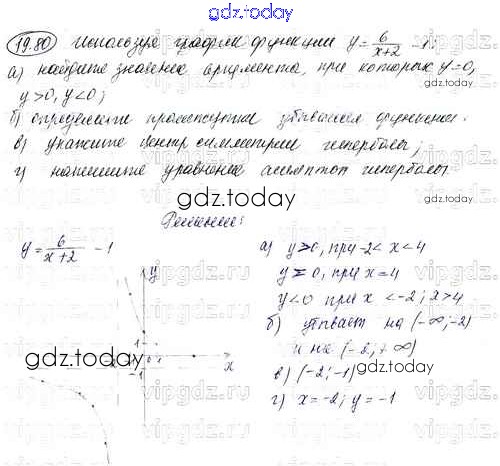 gdz.today
19.80 Используя график функции y = 6/(x+2) - 1:
а) найдите значение аргумента, при которых y=0,
y>0, y<0;
б) определите промежутки убывания функции.
в) укажите центр симметрии гиперболы;
г) напишите уравнение асимптот гиперболы.
gdz.today
gdz.today
Решение:
y = 6/(x+2) - 1
y
1
-1
x
а) y>0, при -2<x<4
y=0, при x=4
y<0 при x<-2; x>4
б) убывает на (-∞;-2)
и на (-2;+∞)
в) (-2;-1)
г) x=-2; y=-1
gdz.today
gdz.today
gdz.today
vipgdz.ru